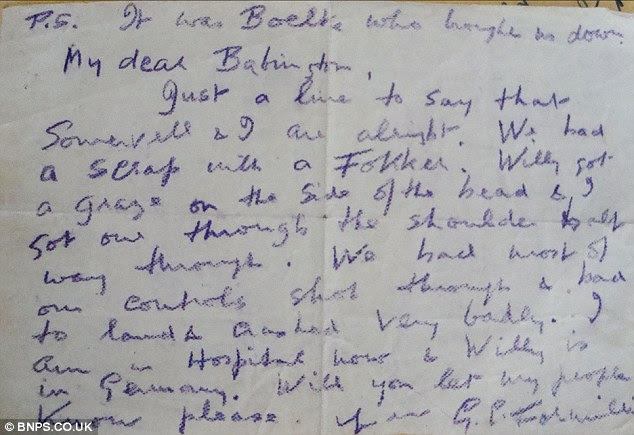 P.S. It was Boelke who brought us down
My dear Babington,
Just a line to say that
Somervell & I are alright. We had
a scrap with a Fokker. Willy got
a graze on the side of the head & I
got one through the shoulder half
way through. We had most of
our controls shot through & had
to land & crashed very badly. I
am in Hospital now & Willy is
in Germany. Will you let my people
know please. G.P.
© BNPS.CO.UK